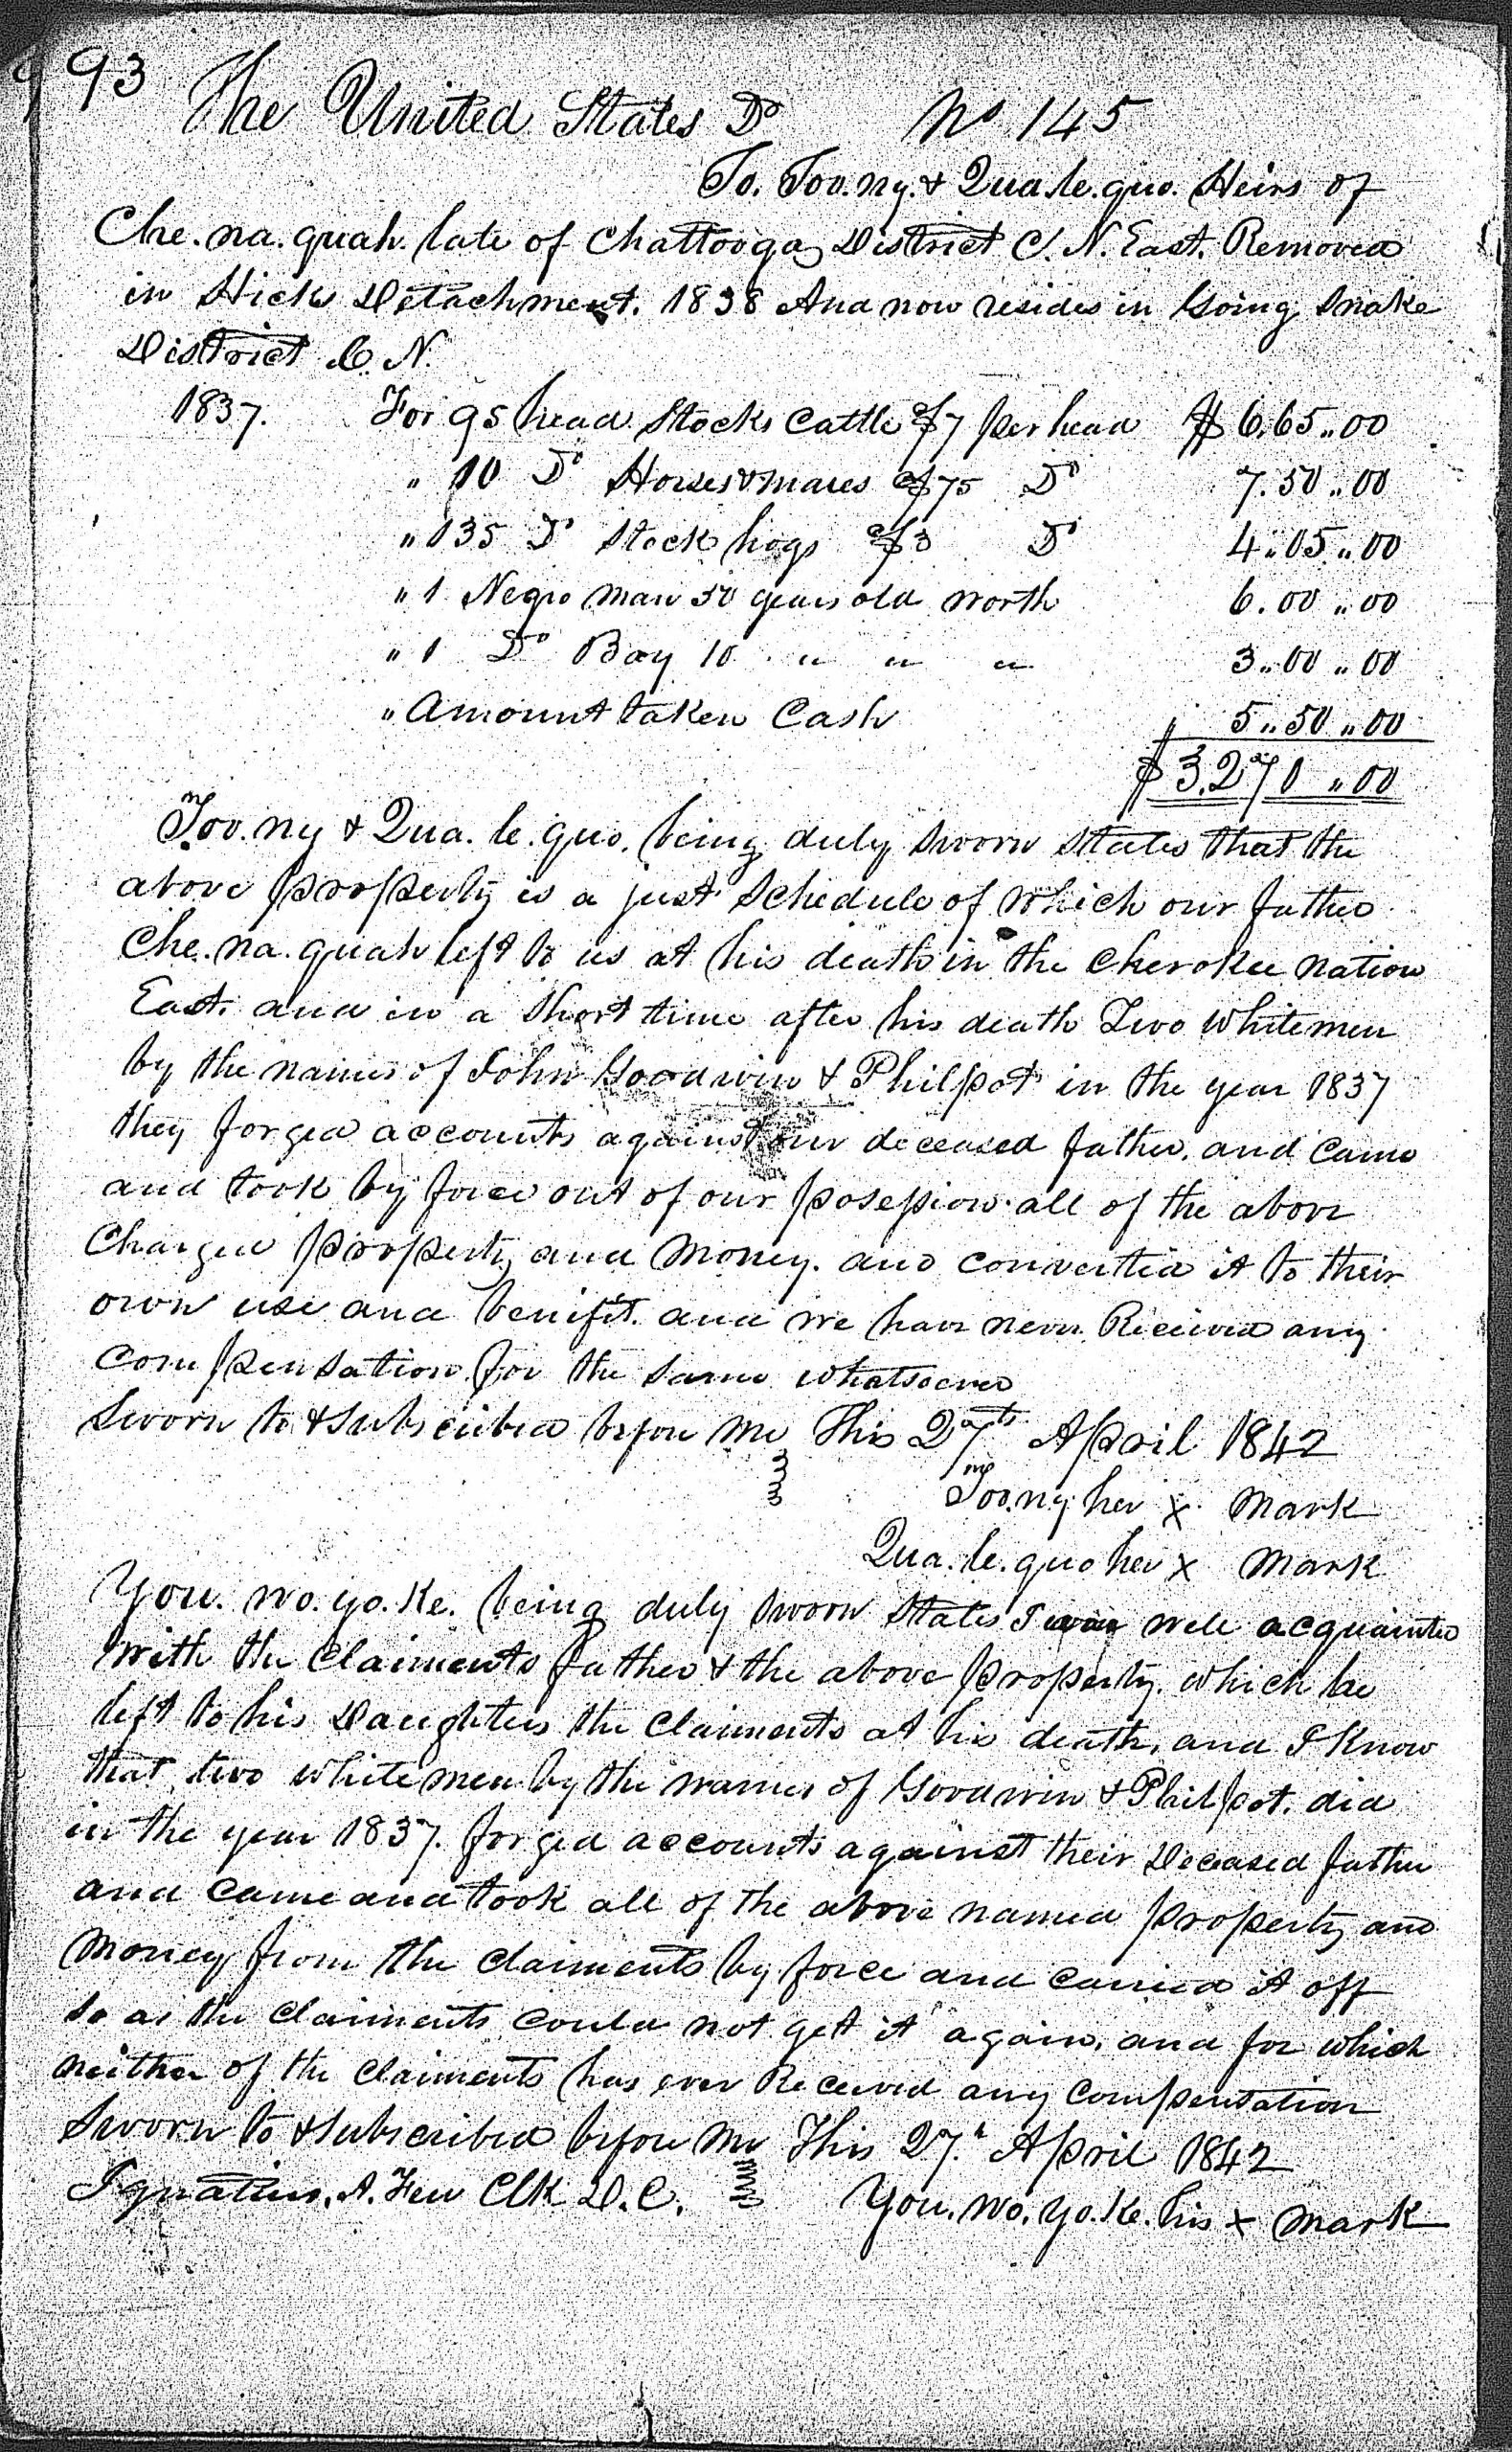 93
The United States Do No 145
To. Too.ny. & Qua.le.quo. Heirs of
Che.na.quah. late of Chattooga District C. N. East. Removed
in Hicks Detachment. 1838 And now resides in Going Snake
District C. N.
1837. For 95 head Stocks Cattle @ $7 per head $ 6.65..00
" 10 Do Horses & mares @ $75 Do 7.50..00
" 135 Do Stock hogs @ $3 Do 4..05..00
" 1 Negro man 30 years old worth 6.00..00
" 1 Do Boy 10 " " " 3..00..00
" Amount taken Cash 5..50..00
$ 3.270..00
Too.ny & Qua.le.quo. being duly Sworn States that the
above property is a just Schedule of which our father
Che.na.quah left to us at his death in the Cherokee nation
East. and in a Short time after his death Two Whitemen
by the names of John Goodwin & Philpot in the year 1837
they forged accounts against our deceased father, and came
and took by force out of our posession all of the above
Charged property and Money. and converted it to their
own use and benifit. and we have never Received any
Compensation for the same whatsoever
Sworn to & Subscribed before me This 27th April 1842
Too.ny her X Mark
Qua.le.quo her X Mark
You.wo.yo.ke. being duly Sworn States I was well acquainted
with the Claiments father & the above property. which he
left to his Daughters the Claiments at his death, and I Know
that two white men by the names of Goodwin & Philpot. did
in the year 1837. forged accounts against their Deceased father
and came and took all of the above named property and
Money from the Claiments by force and carried it off
so as the Claiments could not get it again, and for which
neither of the Claiments has ever Received any compensation
Sworn to & Subscribed before me This 27th April 1842
Ignatius. A. Few Clk D. C. You.wo.yo.ke. his X Mark